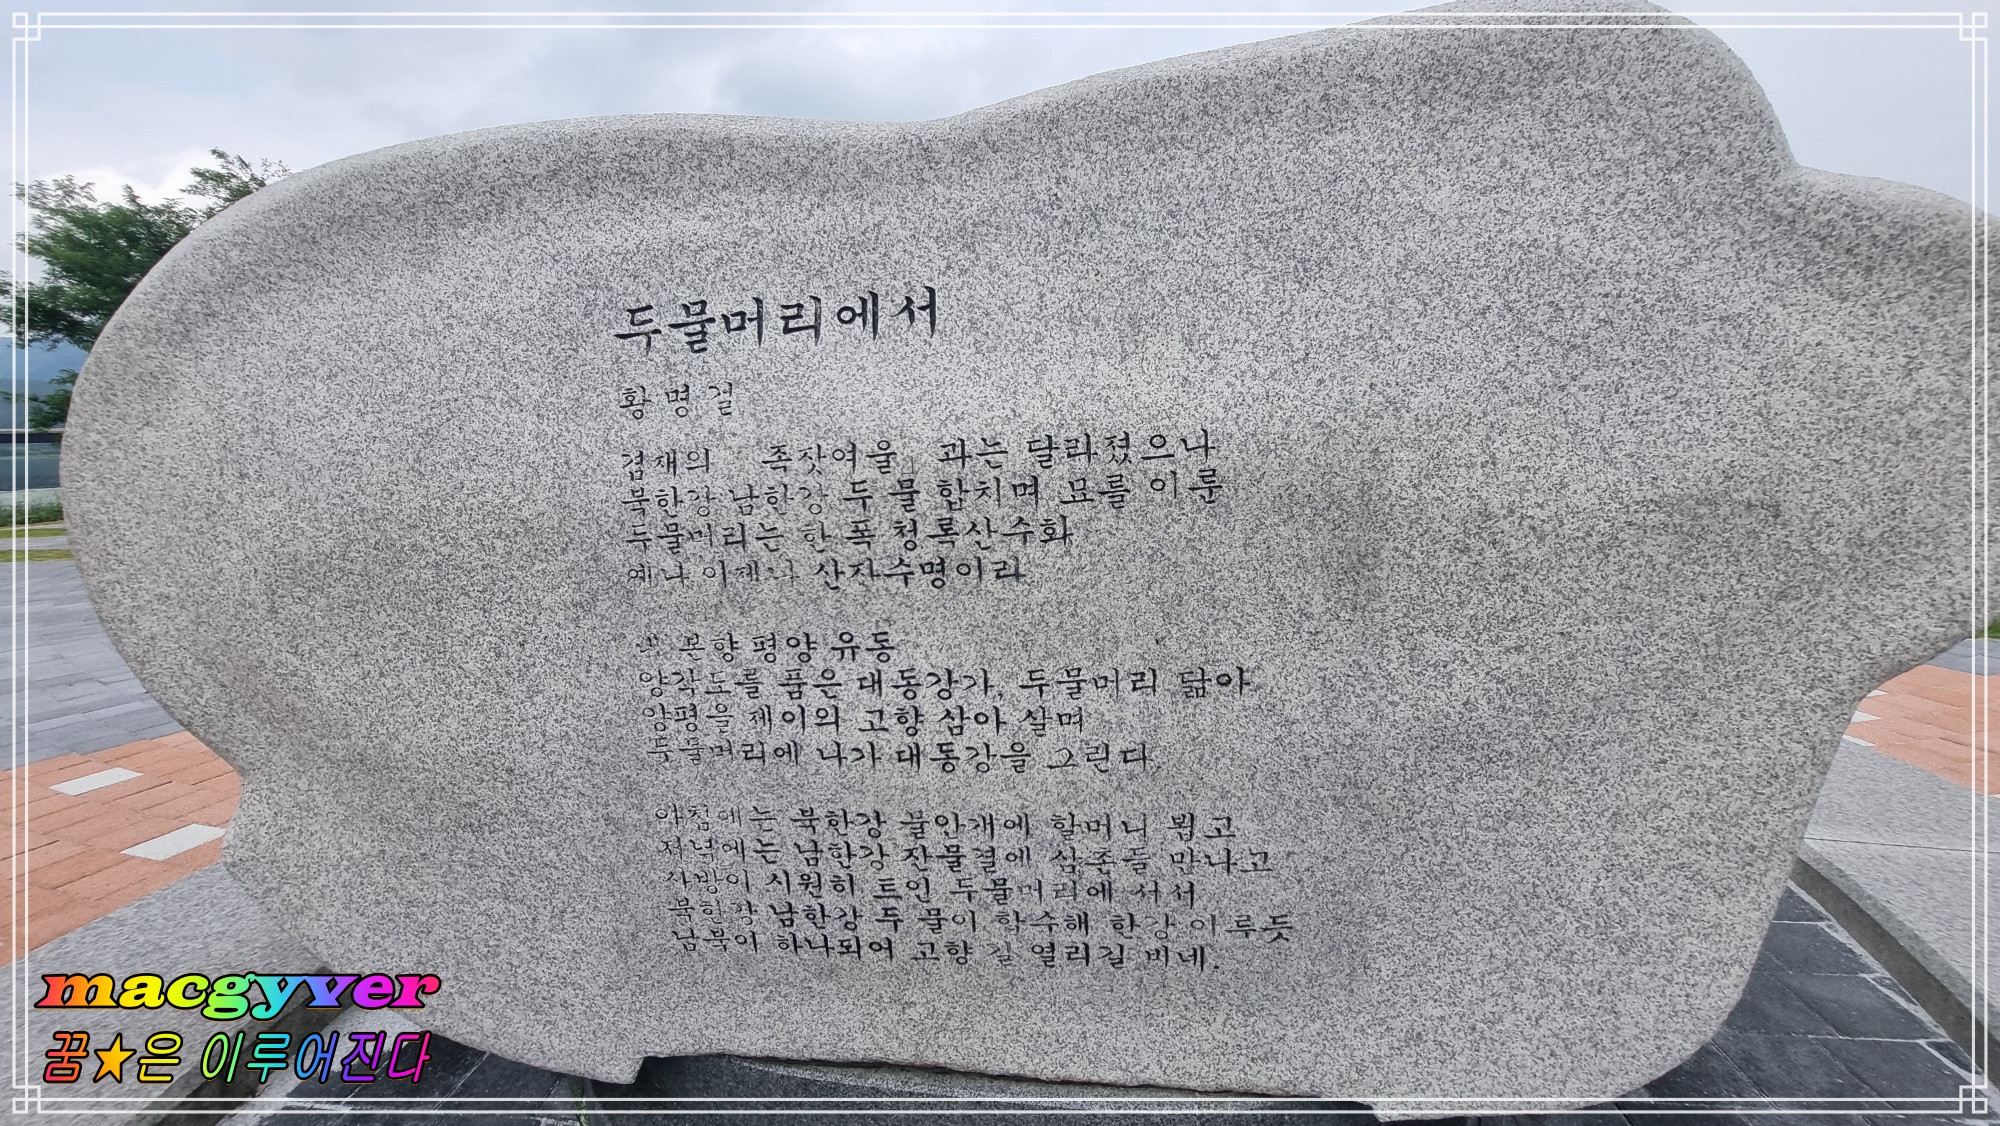 두물머리에서
황명걸
겸재의 「족잣여울」과는 달라졌으나
북한강 남한강 두 물 합치며 묘를 이룬
두물머리는 한 폭 청록산수화
예나 이제나 산자수명이라
내 본향 평양 유동
양각도를 품은 대동강가, 두물머리 닮아
양평을 제이의 고향 삼아 살며
두물머리에 나가 대동강을 그린다.
아침에는 북한강 물안개에 할머니 뵙고
저녁에는 남한강 잔물결에 삼촌들 만나고
사방이 시원히 트인 두물머리에 서서
북한강 남한강 두 물이 합수해 한강 이루듯
남북이 하나되어 고향 길 열리길 비네.
macgyver
꿈★은 이루어진다